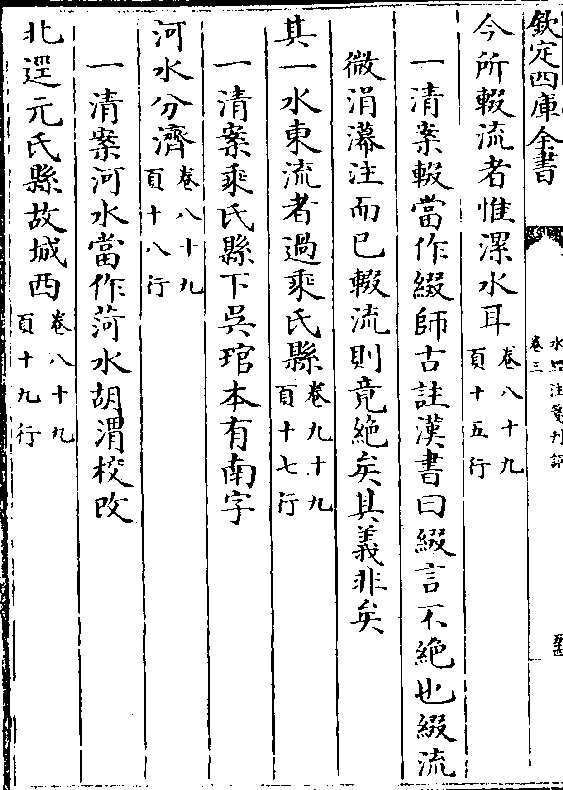 欽定四庫全書
水經注箋刊誤
卷三
今所輟流者惟漯水耳卷八十九頁十五行
一清案輟當作綴師古註漢書曰綴言不絶也綴流
微涓注而已輟流則竟絶矣其義非矣
其一水東流者過乘氏縣卷九十九頁十七行
一清案乘氏縣下吳琯本有南字
河水分濟卷八十九頁十八行
一清案河水當作菏水胡渭校改
北逕元氏縣故城西卷八十九頁十九行